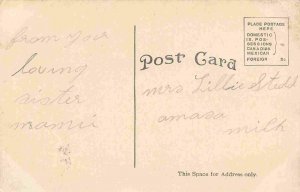 from your
loving
sister
mamie
Post Card
PLACE POSTAGE
HERE
DOMESTIC
IS. POS-
SESSIONS
CANADIAN
MEXICAN
FOREIGN 2c
mrs. Lillie Stedd
amasa
mich
This Space for Address only.